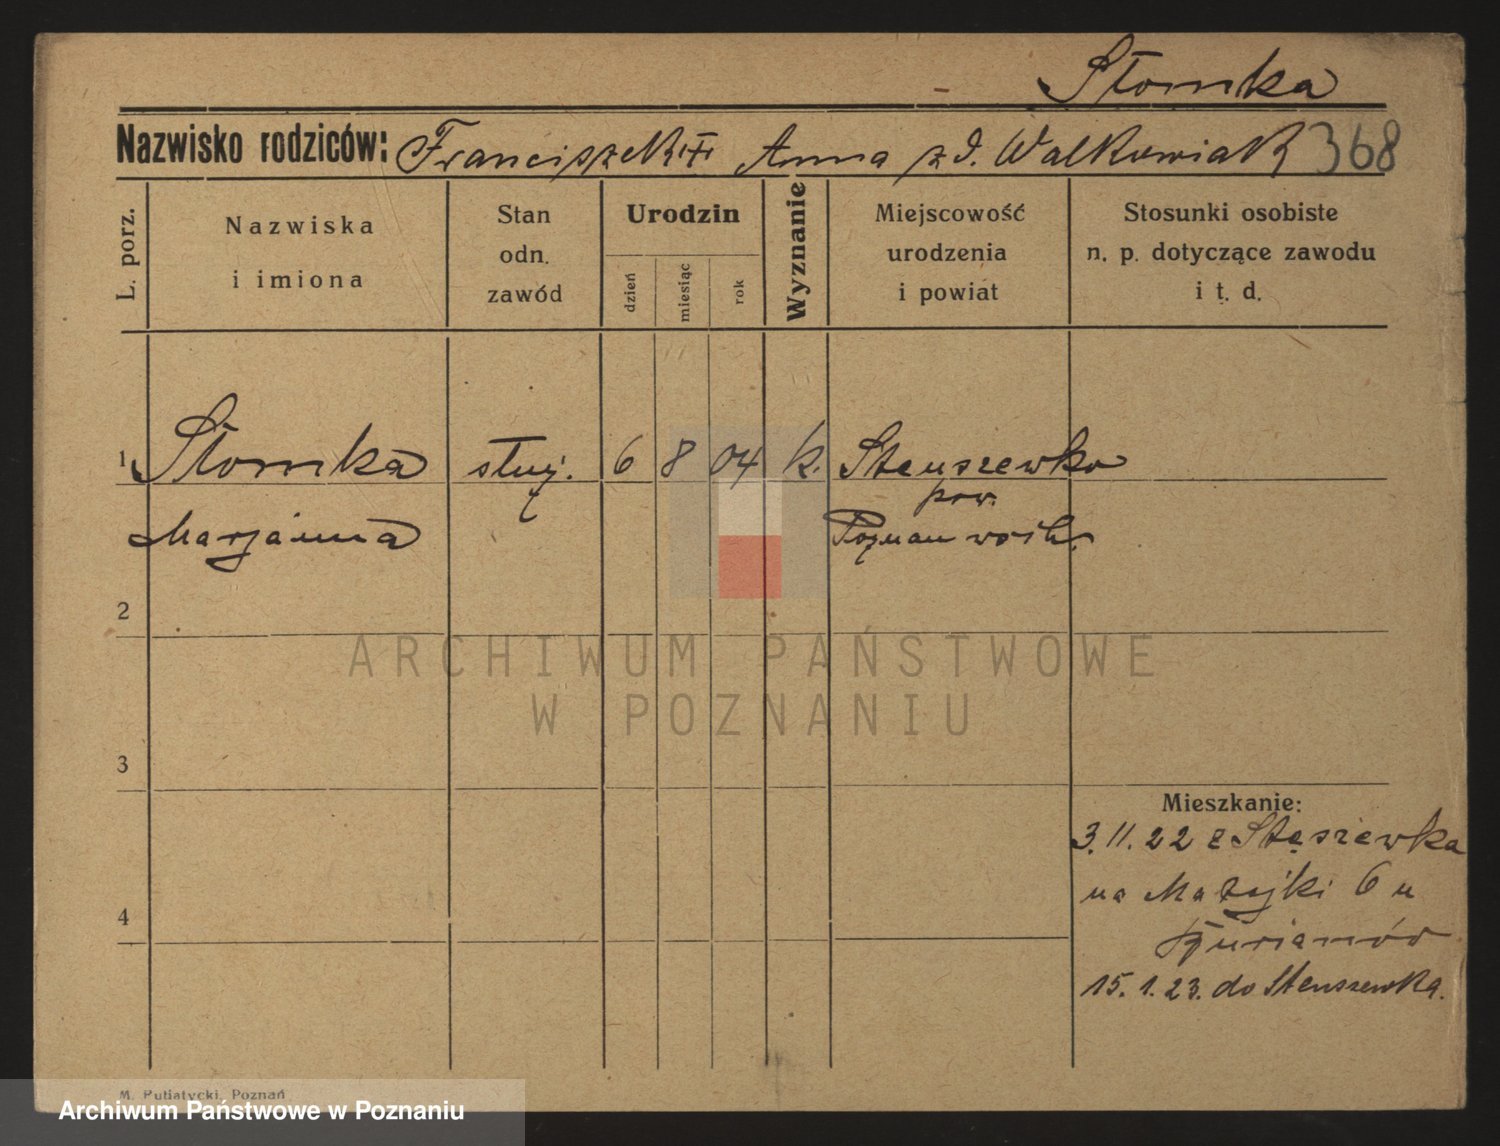 Słomka
Nazwisko rodziców: Franciszek Anna z d. Walkowiak 368
L. porz.
Nazwiska
i imiona
Stan
odn.
zawód
Urodzin
dzień
miesiąc
rok
Wyznanie
Miejscowość
urodzenia
i powiat
Stosunki osobiste
n. p. dotyczące zawodu
i t. d.
1 Słomka służ. 6 8 04 k. Stenszewko
pow.
Marjanna Poznań wsch.
2
3
4
Mieszkanie:
3.11.22 z Stęszewka
na Matejki 6 u
15.1.23. do Stenszewka.
M. Putiatycki, Poznań
ARCHIWUM PAŃSTWOWE
W POZNANIU
Archiwum Państwowe w Poznaniu